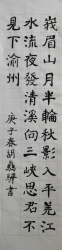 峩眉山月半輪秋影入平羌江
水流夜發清溪向三峽思君不
見下渝州
庚子春胡書